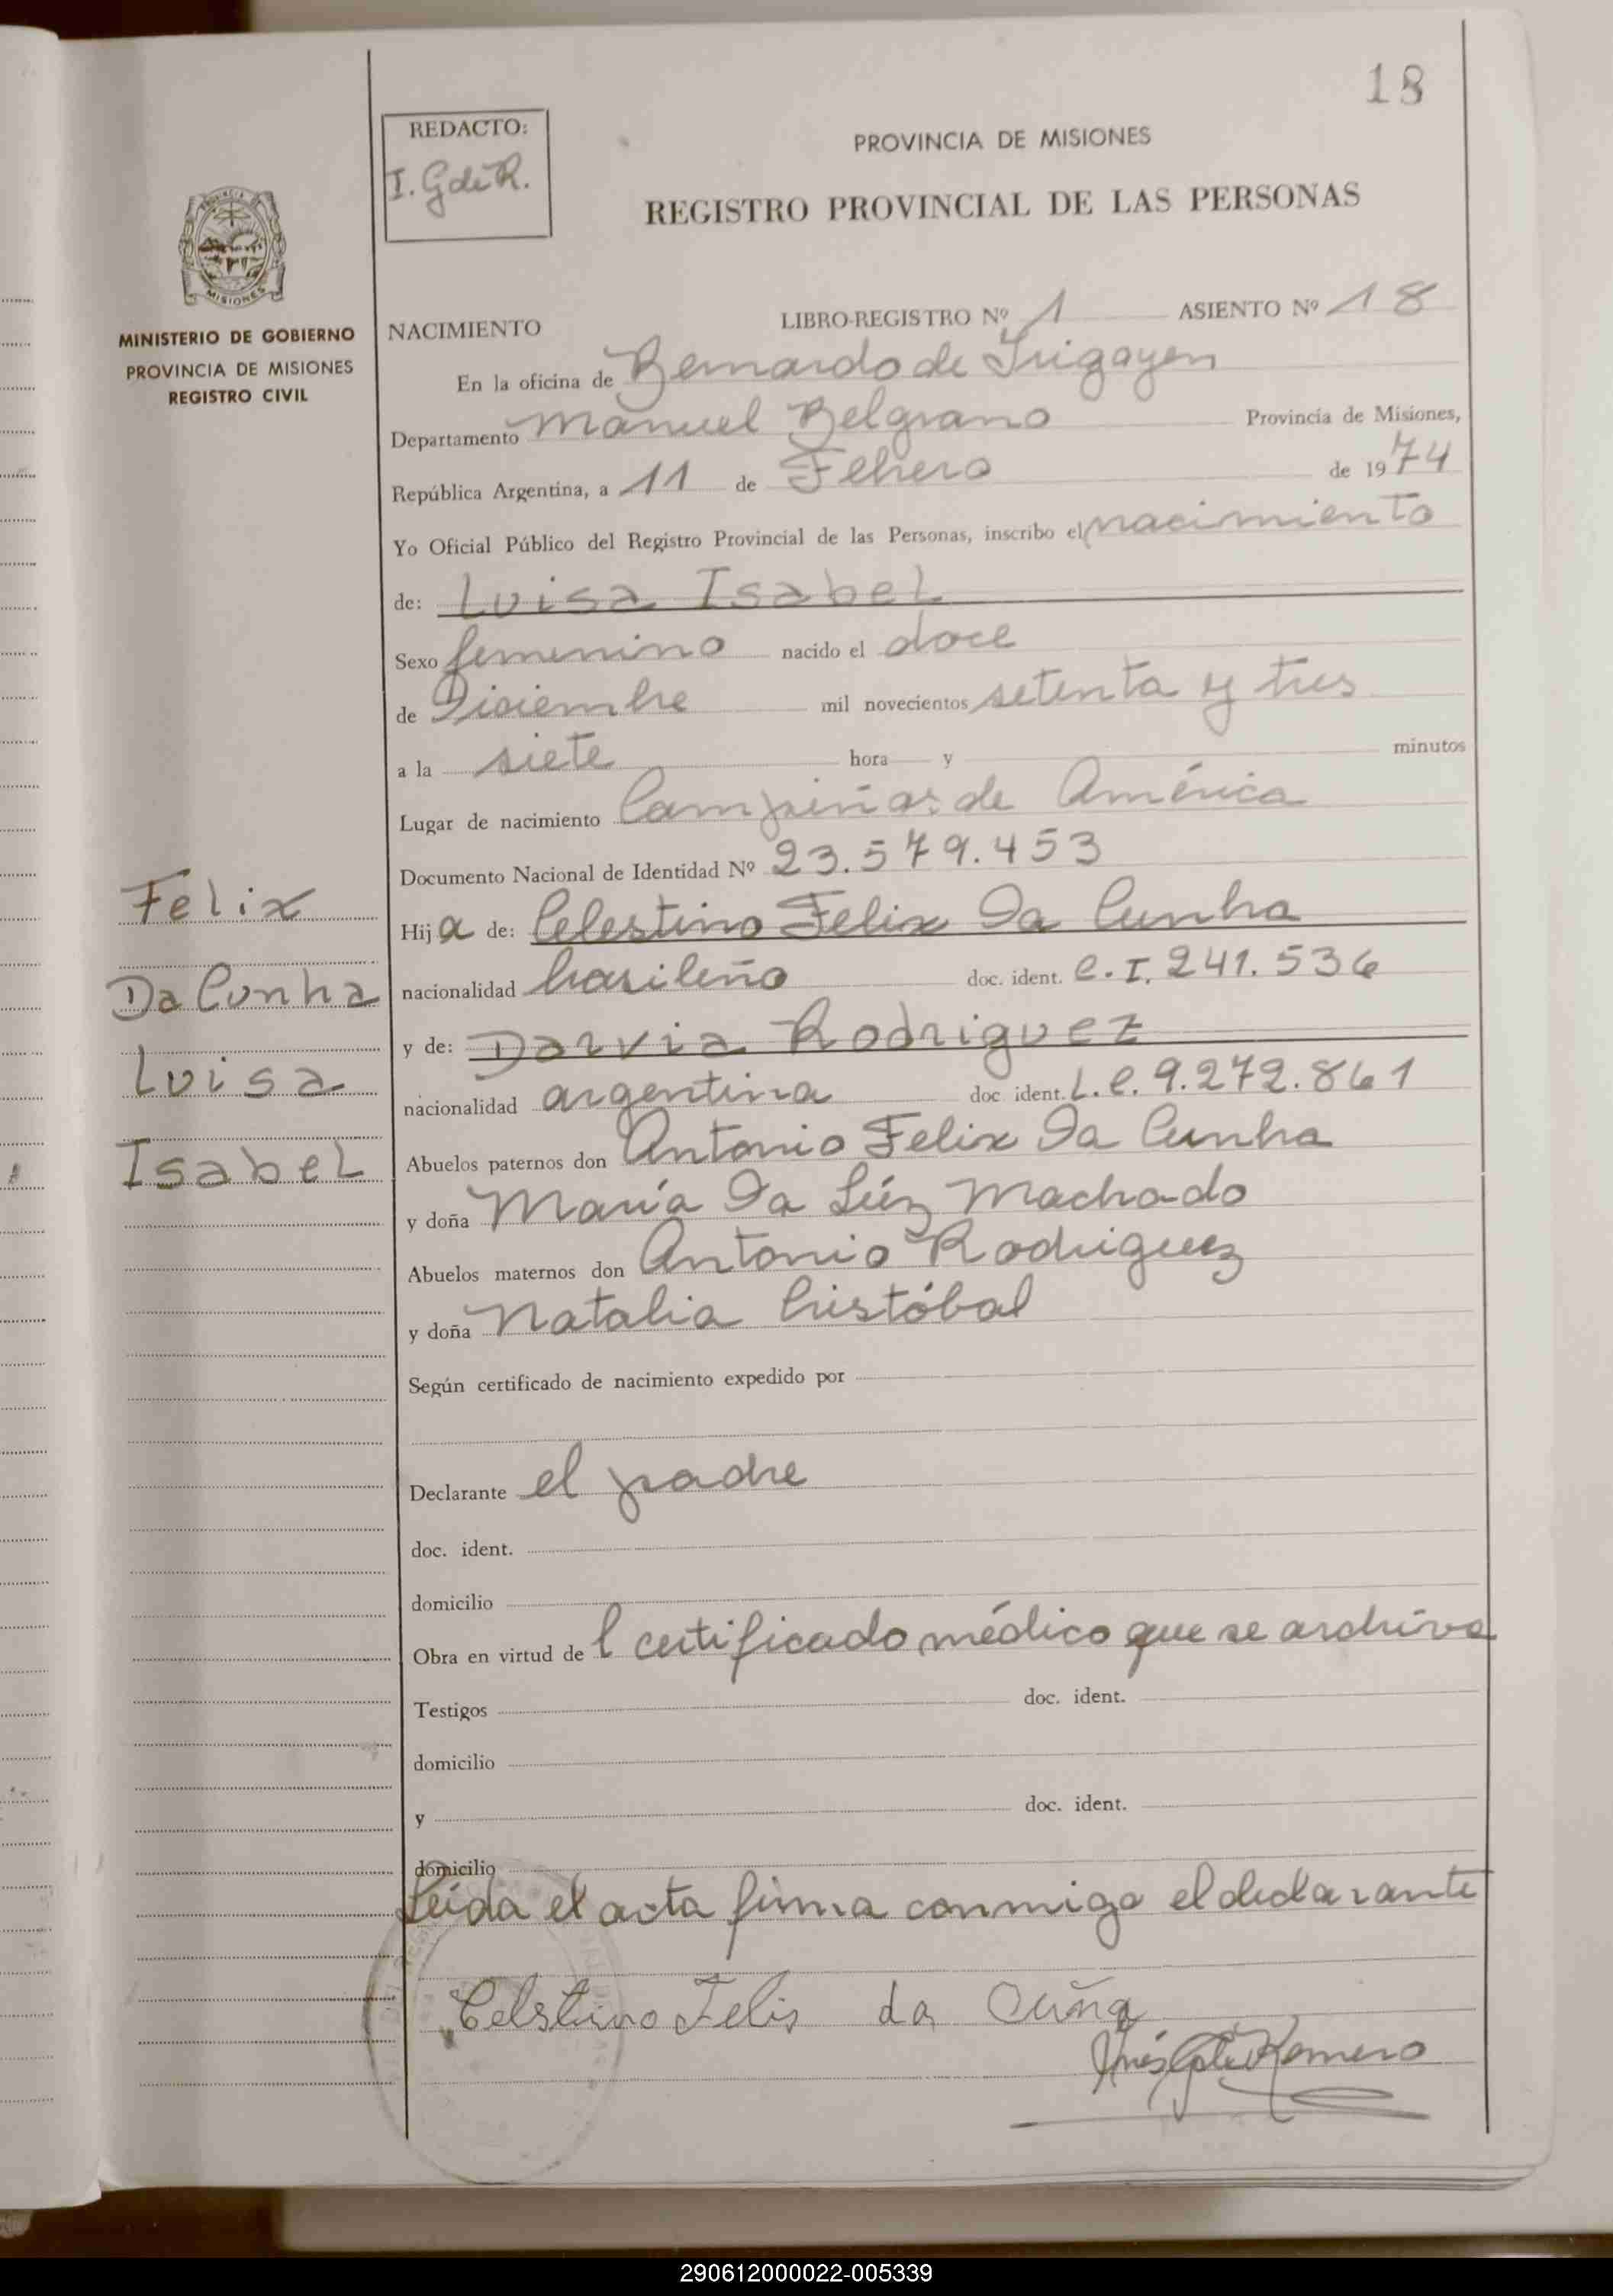 18
REDACTO:
I. G de R.
PROVINCIA DE MISIONES
REGISTRO PROVINCIAL DE LAS PERSONAS
MISIONES
MINISTERIO DE GOBIERNO
PROVINCIA DE MISIONES
REGISTRO CIVIL
NACIMIENTO LIBRO-REGISTRO Nº 1 ASIENTO Nº 18
En la oficina de Bernardo de Irigoyen
Departamento Manuel Belgrano Provincia de Misiones,
República Argentina, a 11 de Febrero de 1974
Yo Oficial Público del Registro Provincial de las Personas, inscribo el nacimiento
de: Luisa Isabel
Sexo femenino nacido el doce
de Diciembre mil novecientos setenta y tres
a la siete hora y minutos
Lugar de nacimiento Campiñas de América
Documento Nacional de Identidad Nº 23.579.453
Hija de: Celestino Felix Da Cunha
nacionalidad brasileño doc. ident. C.I. 241.536
y de: Darvia Rodriguez
nacionalidad argentina doc ident. L.C. 9.272.861
Abuelos paternos don Antonio Felix Da Cunha
y doña María Da Lúz Machado
Abuelos maternos don Antonio Rodriguez
y doña Natalia Cristóbal
Según certificado de nacimiento expedido por
Declarante el padre
doc. ident.
domicilio
Obra en virtud del certificado médico que se archiva
Testigos doc. ident.
domicilio
y doc. ident.
domicilio
Leida el acta firma conmigo el declarante
Celstino Felis da Cuña
Inés G de Romero
Felix
Da Cunha
Luisa
Isabel
290612000022-005339